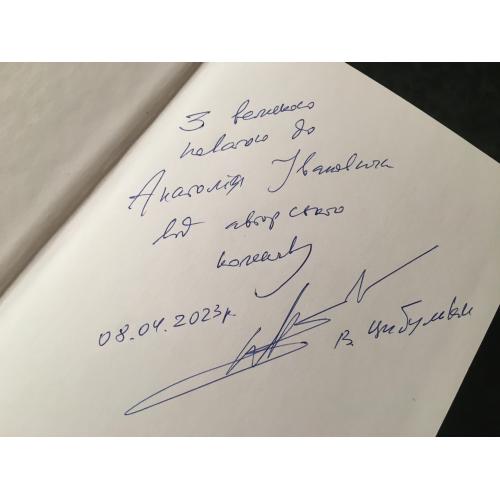 З великою
повагою до
Анатолія Івановича
від авторського
колективу
08.04.2023р.
В. Цибулькін